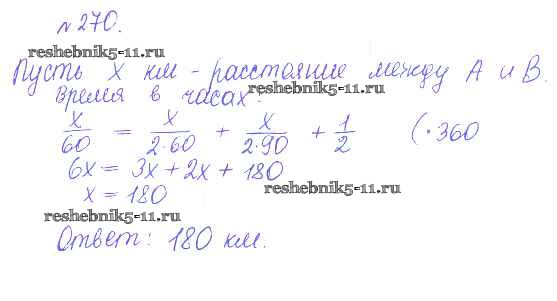 №270.
reshebnik5-11.ru
Пусть x км - расстояние между А и В.
reshebnik5-11.ru
Время в часах:
x/60 = x/2·60 + x/2·90 + 1/2 (·360
6x = 3x + 2x + 180
x = 180
reshebnik5-11.ru
reshebnik5-11.ru
Ответ: 180 км.